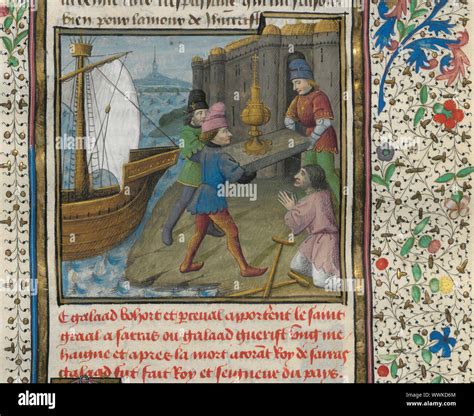 bien pour lamour de
galaad bohort et perceual apportent le saint
graal a sarras ou galaad guerist vng me
haigne et apres la mort acorant Roy de sarras
galaad fut fait Roy et seigneur du pays.
alamy
WWKD6M